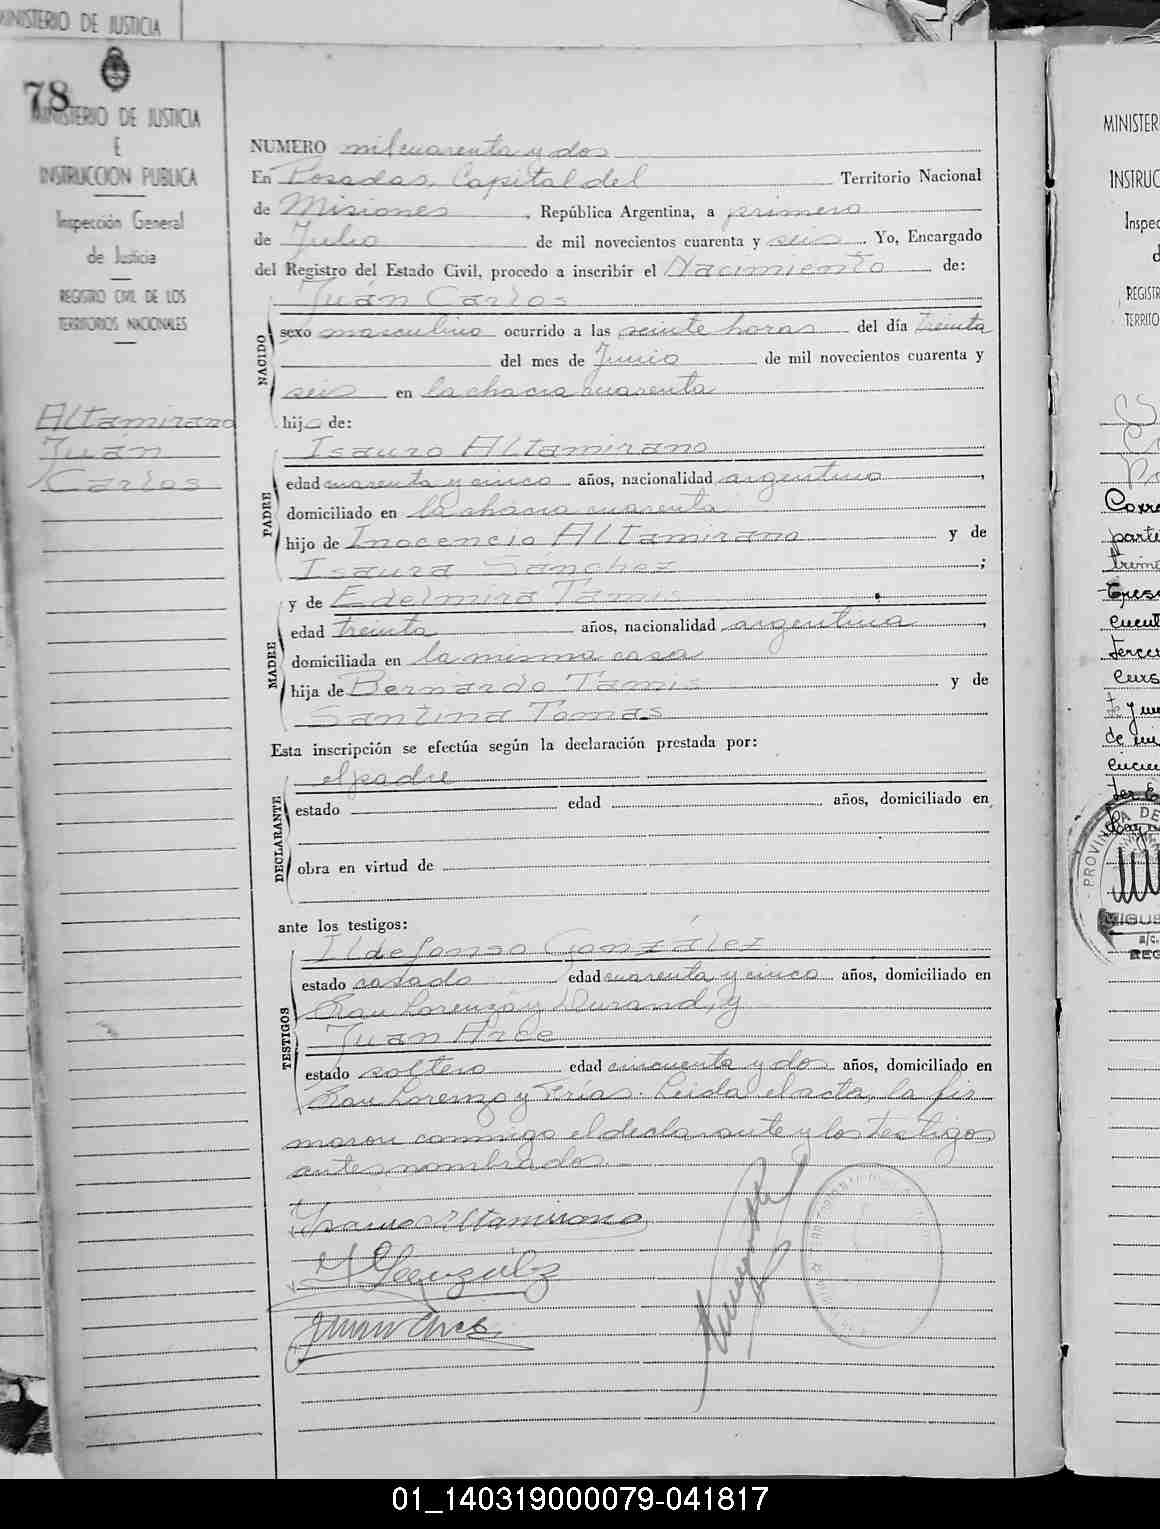 MINISTERIO DE JUSTICIA
78
MINISTERIO DE JUSTICIA
E
INSTRUCCION PUBLICA
Inspección General
de Justicia
REGISTRO CIVIL DE LOS
TERRITORIOS NACIONALES
Altamirano
Juán
Carlos
NUMERO mil cuarenta y dos
En Posadas, Capital del Territorio Nacional
de Misiones, República Argentina, a primero
de Julio de mil novecientos cuarenta y seis. Yo, Encargado
del Registro del Estado Civil, procedo a inscribir el Nacimiento de:
NACIDO
Juán Carlos
sexo masculino ocurrido a las veinte horas del día treinta
del mes de Junio de mil novecientos cuarenta y
seis en la chacra cuarenta
hijo de:
PADRE
Isauro Altamirano
edad cuarenta y cinco años, nacionalidad argentino,
domiciliado en la chacra cuarenta
hijo de Inocencio Altamirano y de
Isaura Sanchez;
MADRE
y de Edelmira Tamis
edad treinta años, nacionalidad argentina,
domiciliada en la misma casa
hija de Bernardo Tamis y de
Santina Tomas
Esta inscripción se efectúa según la declaración prestada por:
DECLARANTE
el padre
estado edad años, domiciliado en
obra en virtud de
ante los testigos:
TESTIGOS
Ildefonso González
estado casado edad cuarenta y cinco años, domiciliado en
San Lorenzo y Durand, y
Juan Arce
estado soltero edad cincuenta y dos años, domiciliado en
San Lorenzo y Frías. Leida el acta, la fir
maron conmigo el declarante y los testigos
antes nombrados.
Isauro Altamirano
I Gonzalez
Juan Arce
MINISTER
INSTRUC
Inspec
d
REGISTR
TERRITO
PROVINCIA DE
MIGUE
a/c.
REG
01_140319000079-041817